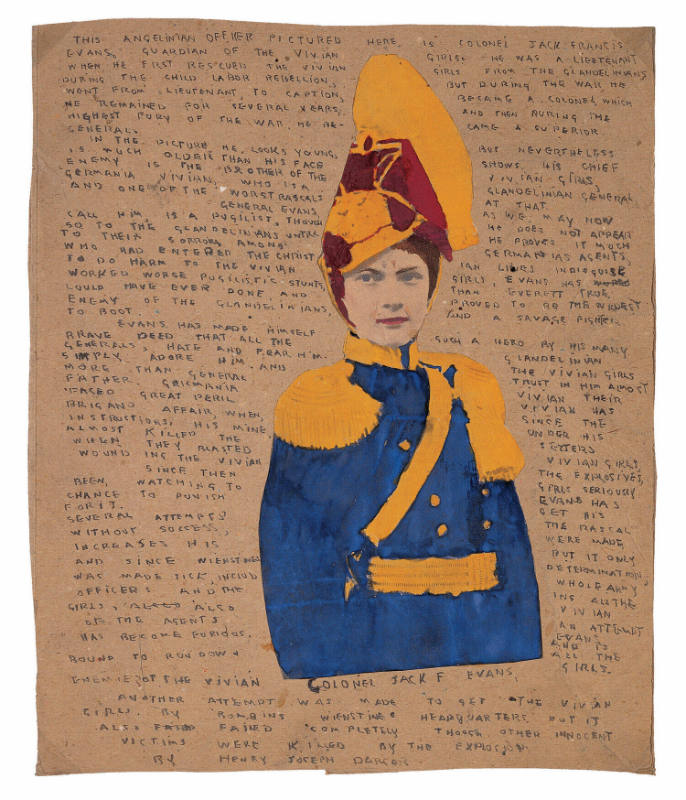 THIS ANGELINIAN OFFICER PICTURED HERE IS COLONEL JACK FRANCIS
EVANS, GUARDIAN OF THE VIVIAN GIRLS. HE WAS A LIEUTENANT
WHEN HE FIRST RESCUED THE VIVIAN GIRLS FROM THE GLANDELINIANS
DURING THE CHILD LABOR REBELLION, BUT DURING THE WAR HE
WENT FROM LIEUTENANT TO CAPTION, BECAME A COLONEL, WHICH
HE REMAINED FOR SEVERAL YEARS, AND THEN DURING THE
HIGHEST FURY OF THE WAR HE BE- CAME A SUPERIOR
GENERAL.
IN THE PICTURE HE LOOKS YOUNG, BUT NEVERTHELESS
IS MUCH OLDER THAN HIS FACE SHOWS. HIS CHIEF
ENEMY IS THE BROTHER OF THE VIVIAN GIRLS,
GERMANIA VIVIAN, WHO IS A GLANDELINIAN GENERAL
AND ONE OF THE WORST RASCALS AT THAT.
GENERAL EVANS, AS WE MAY NOW
CALL HIM, IS A PUGILIST, THOUGH HE DOES NOT APPEAR
SO TO THE GLANDELINIANS UNTIL HE PROVES IT MUCH
TO THEIR SORROW, AMONG GERMANIAS AGENTS,
WHO HAD ENTERED THE CHRIST IAN LINES IN DISGUISE
TO DO HARM TO THE VIVIAN GIRLS, EVANS HAS
WORKED WORSE PUGILISTIC STUNTS, THAN EVERETT TRUE
COULD HAVE EVER DONE AND PROVED TO BE THE WORST
ENEMY OF THE GLANDELINIANS, AND A SAVAGE FIGHTER
TO BOOT.
EVANS HAS MADE HIMSELF SUCH A HERO BY HIS MANY
BRAVE DEED THAT ALL THE GLANDELINIAN
GENERALS, HATE AND FEAR HIM. THE VIVIAN GIRLS
SIMPLY ADORE HIM AND TRUST IN HIM ALMOST
MORE THAN GENERAL VIVIAN THEIR
FATHER. GERMANIA VIVIAN HAS
FACED GREAT PERIL SINCE THE
BRIGAND AFFAIR, WHEN, UNDER HIS
INSTRUCTIONS, HIS MINE SETTERS
ALMOST KILLED THE VIVIAN GIRLS,
WHEN THEY BLASTED THE EXPLOSIVES,
WOUNDING THE VIVIAN GIRLS SERIOUSLY
SINCE THEN EVANS HAS
BEEN, WATCHING TO GET HIS
CHANCE TO PUNISH THE RASCAL
FOR IT.
SEVERAL ATTEMPTS WERE MADE
WITHOUT SUCCESS, BUT IT ONLY
INCREASES HIS DETERMINATION,
AND SINCE WIENSTINES WHOLE ARMY
WAS MADE SICK, INCLUD ING ALL THE
OFFICERS AND THE VIVIAN
GIRLS, ALSO AN ATTEMPT
OF THE AGENTS EVANS
HAS BECOME FURIOUS, AND IS
BOUND TO RUN DOWN ALL THE
ENEMIE OF THE VIVIAN GIRLS.
COLONEL JACK F EVANS,
ANOTHER ATTEMPT WAS MADE TO GET THE VIVIAN
GIRLS BY BOMBING WIENSTINES HEADQUARTERS BUT IT
ALSO FAIRED COMPLETELY THOUGH OTHER INNOCENT
VICTIMS WERE KILLED BY THE EXPLOSION
BY HENRY JOSEPH DARGER